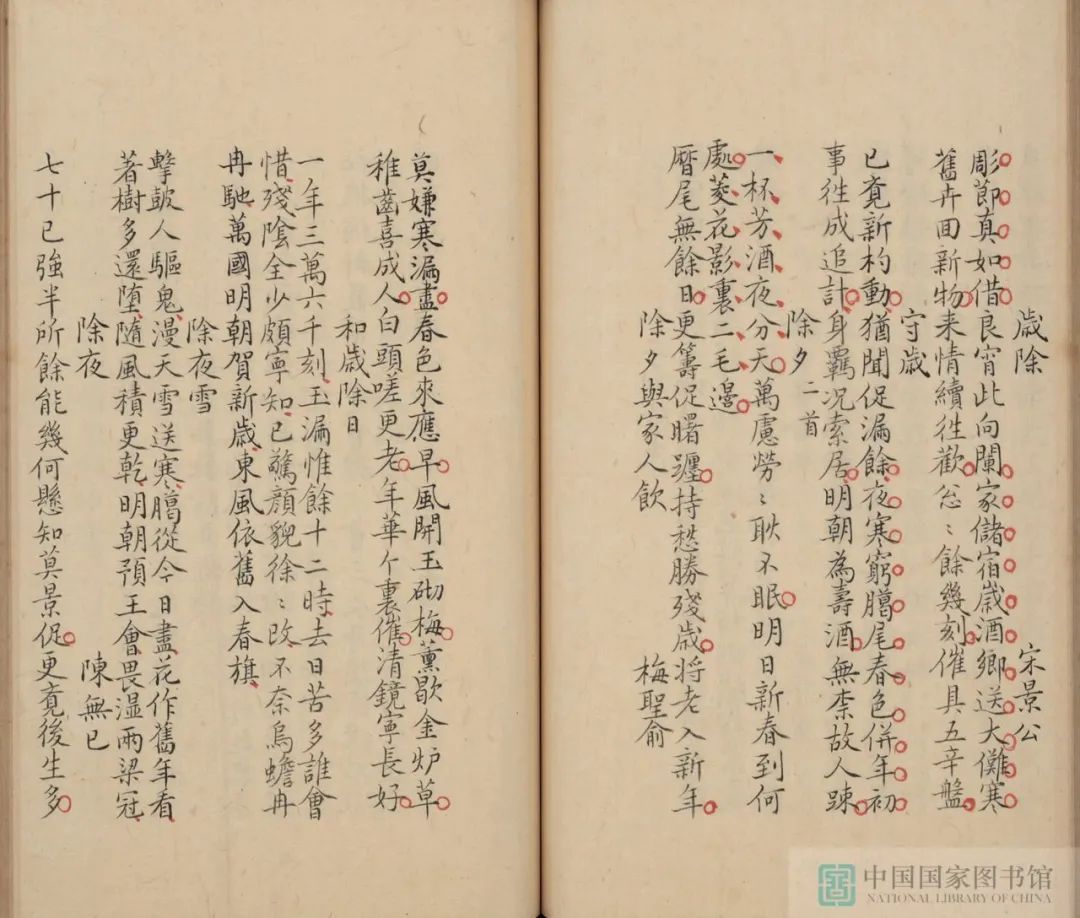 歲除 宋景公
彫節真如借良宵此向闌家儲宿歲酒鄉送大儺寒
舊卉回新物来情續徃歡忩〻餘幾刻催具五辛盤
守歲
已竟新杓動猶聞促漏餘夜寒窮臈尾春色併年初
事徃成追計身羈况索居明朝為壽酒無柰故人踈
除夕二首
一杯芳酒夜分天萬慮勞〻耿不眠明日新春到何
處菱花影裏二毛邉
曆尾無餘日更籌促曙躔持愁勝殘歲将老入新年
除夕與家人飲 梅聖俞
莫嫌寒漏盡春色來應早風開玉砌梅薰歇金炉草
稚齒喜成人白頭嗟更老年華个裏催清鏡寧長好
和歲除日
一年三萬六千刻玉漏惟餘十二時去日苦多誰會
惜殘陰全少頗寧知已驚顔貌徐〻改不奈烏蟾冉
冉馳萬國明朝賀新歲東風依舊入春旗
除夜雪
擊鼓人驅鬼漫天雪送寒臈從今日盡花作舊年看
著樹多還堕隨風積更乾明朝預王會畏濕兩梁冠
除夜 陳無已
七十已強半所餘能幾何懸知莫景促更竟後生多
中国国家图书馆
NATIONAL LIBRARY OF CHINA